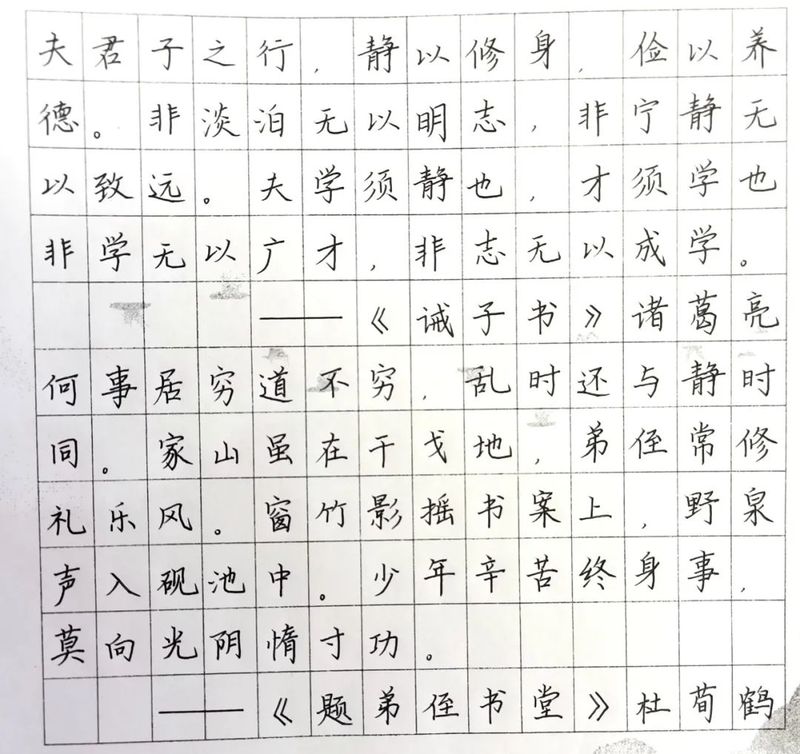 夫君子之行,静以修身,俭以养
德。非淡泊无以明志,非宁静无
以致远。夫学须静也,才须学也
非学无以广才,非志无以成学。
——《诫子书》诸葛亮
何事居穷道不穷,乱时还与静时
同。家山虽在干戈地,弟侄常修
礼乐风。窗竹影摇书案上,野泉
声入砚池中。少年辛苦终身事,
莫向光阴惰寸功。
——《题弟侄书堂》杜荀鹤